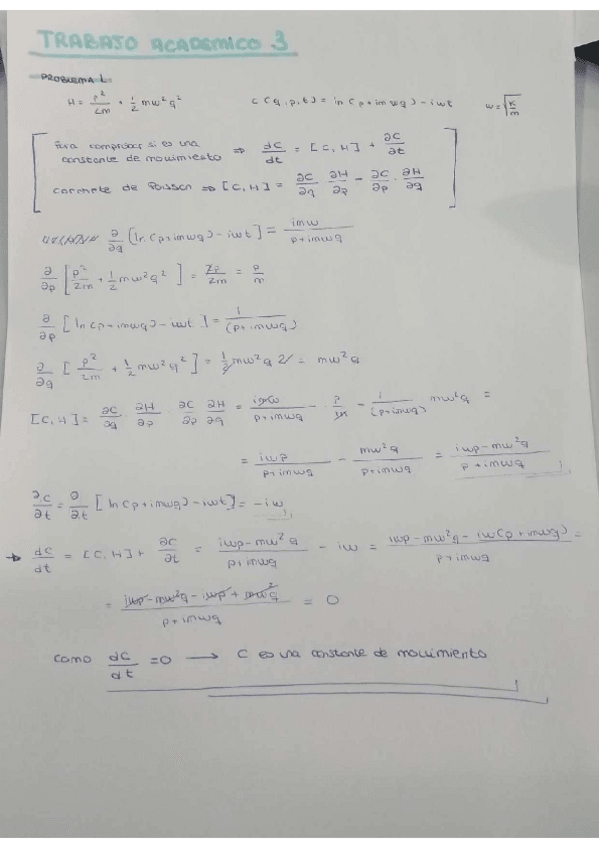 TRABAJO ACADEMICO 3
PROBLEMA 1.
H = p²/2m + 1/2 mω²q²    C(q,p,t) = ln(p+imωq) - iωt    ω = √(K/m)
Para comprobar si es una constante de movimiento ⇒ dC/dt = [C,H] + ∂C/∂t
Corchete de Poisson ⇒ [C,H] = ∂C/∂q · ∂H/∂p - ∂C/∂p · ∂H/∂q
∂/∂q [ln(p+imωq) - iωt] = imω/(p+imωq)
∂/∂p [p²/2m + 1/2 mω²q²] = 2p/2m = p/m
∂/∂p [ln(p+imωq) - iωt] = 1/(p+imωq)
∂/∂q [p²/2m + 1/2 mω²q²] = 1/2 mω²q 2 = mω²q
[C,H] = ∂C/∂q · ∂H/∂p ∂C/∂p ∂H/∂q = imω/(p+imωq) · p/m - 1/(p+imωq) mω²q =
= iωp/(p+imωq) - mω²q/(p+imωq) = (iωp - mω²q)/(p+imωq)
∂C/∂t = ∂/∂t [ln(p+imωq) - iωt] = -iω
→ dC/dt = [C,H] + ∂C/∂t = (iωp - mω²q)/(p+imωq) - iω = (iωp - mω²q - iω(p+imωq))/(p+imωq) =
= (iωp - mω²q - iωp + mω²q)/(p+imωq) = 0
Como dC/dt = 0 → C es una constante de movimiento